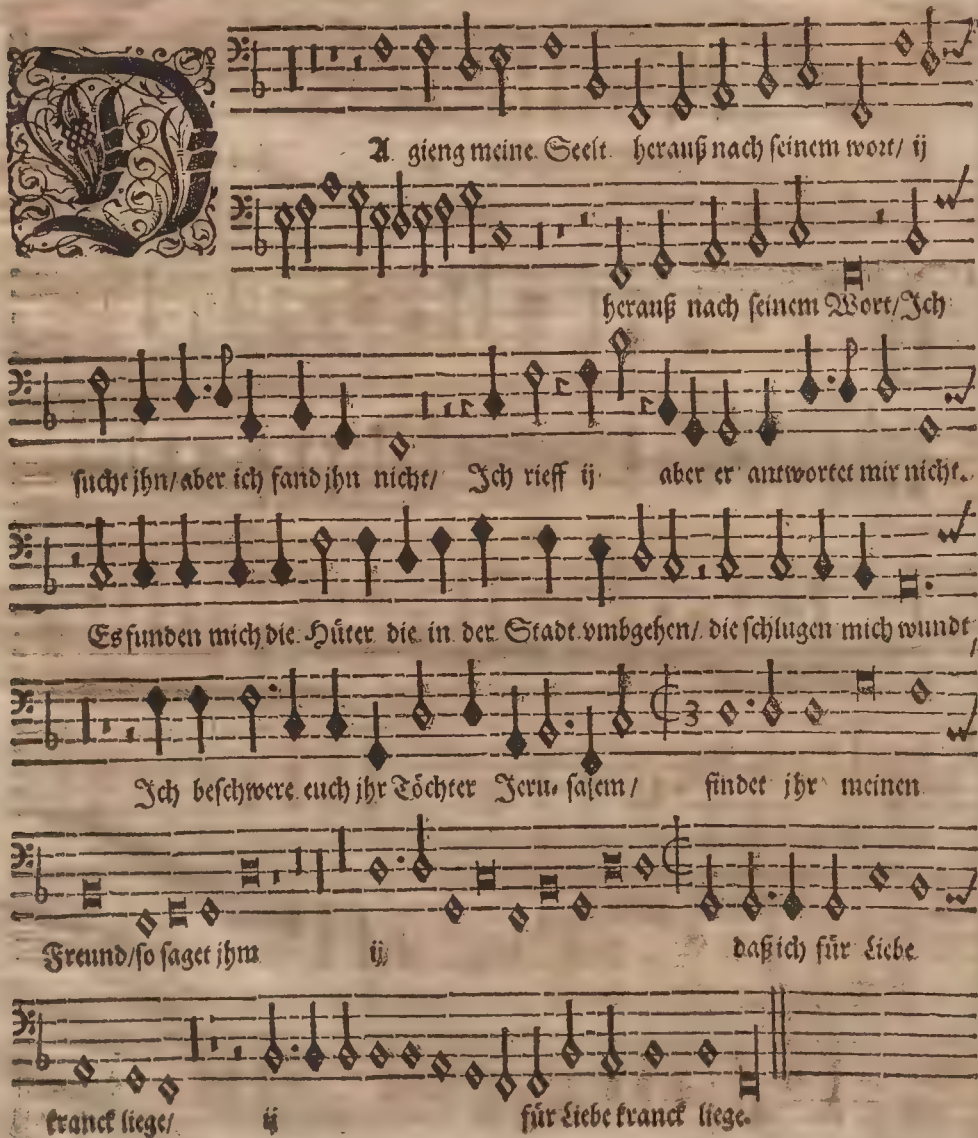 DA gieng meine Seele herauß nach seinem wort/ ij
herauß nach seinem Wort/ Ich
sucht jhn/ aber ich fand jhn nicht/ Ich rieff ij aber er antwortet mir nicht.
Es funden mich die Hüter die in der Stadt vmbgehen/ die schlugen mich wundt/
Ich beschwere euch jhr Töchter Jeru- salem/ findet jhr meinen
Freund/ so saget jhm ij daß ich für Liebe
kranck liege/ ij für Liebe kranck liege.